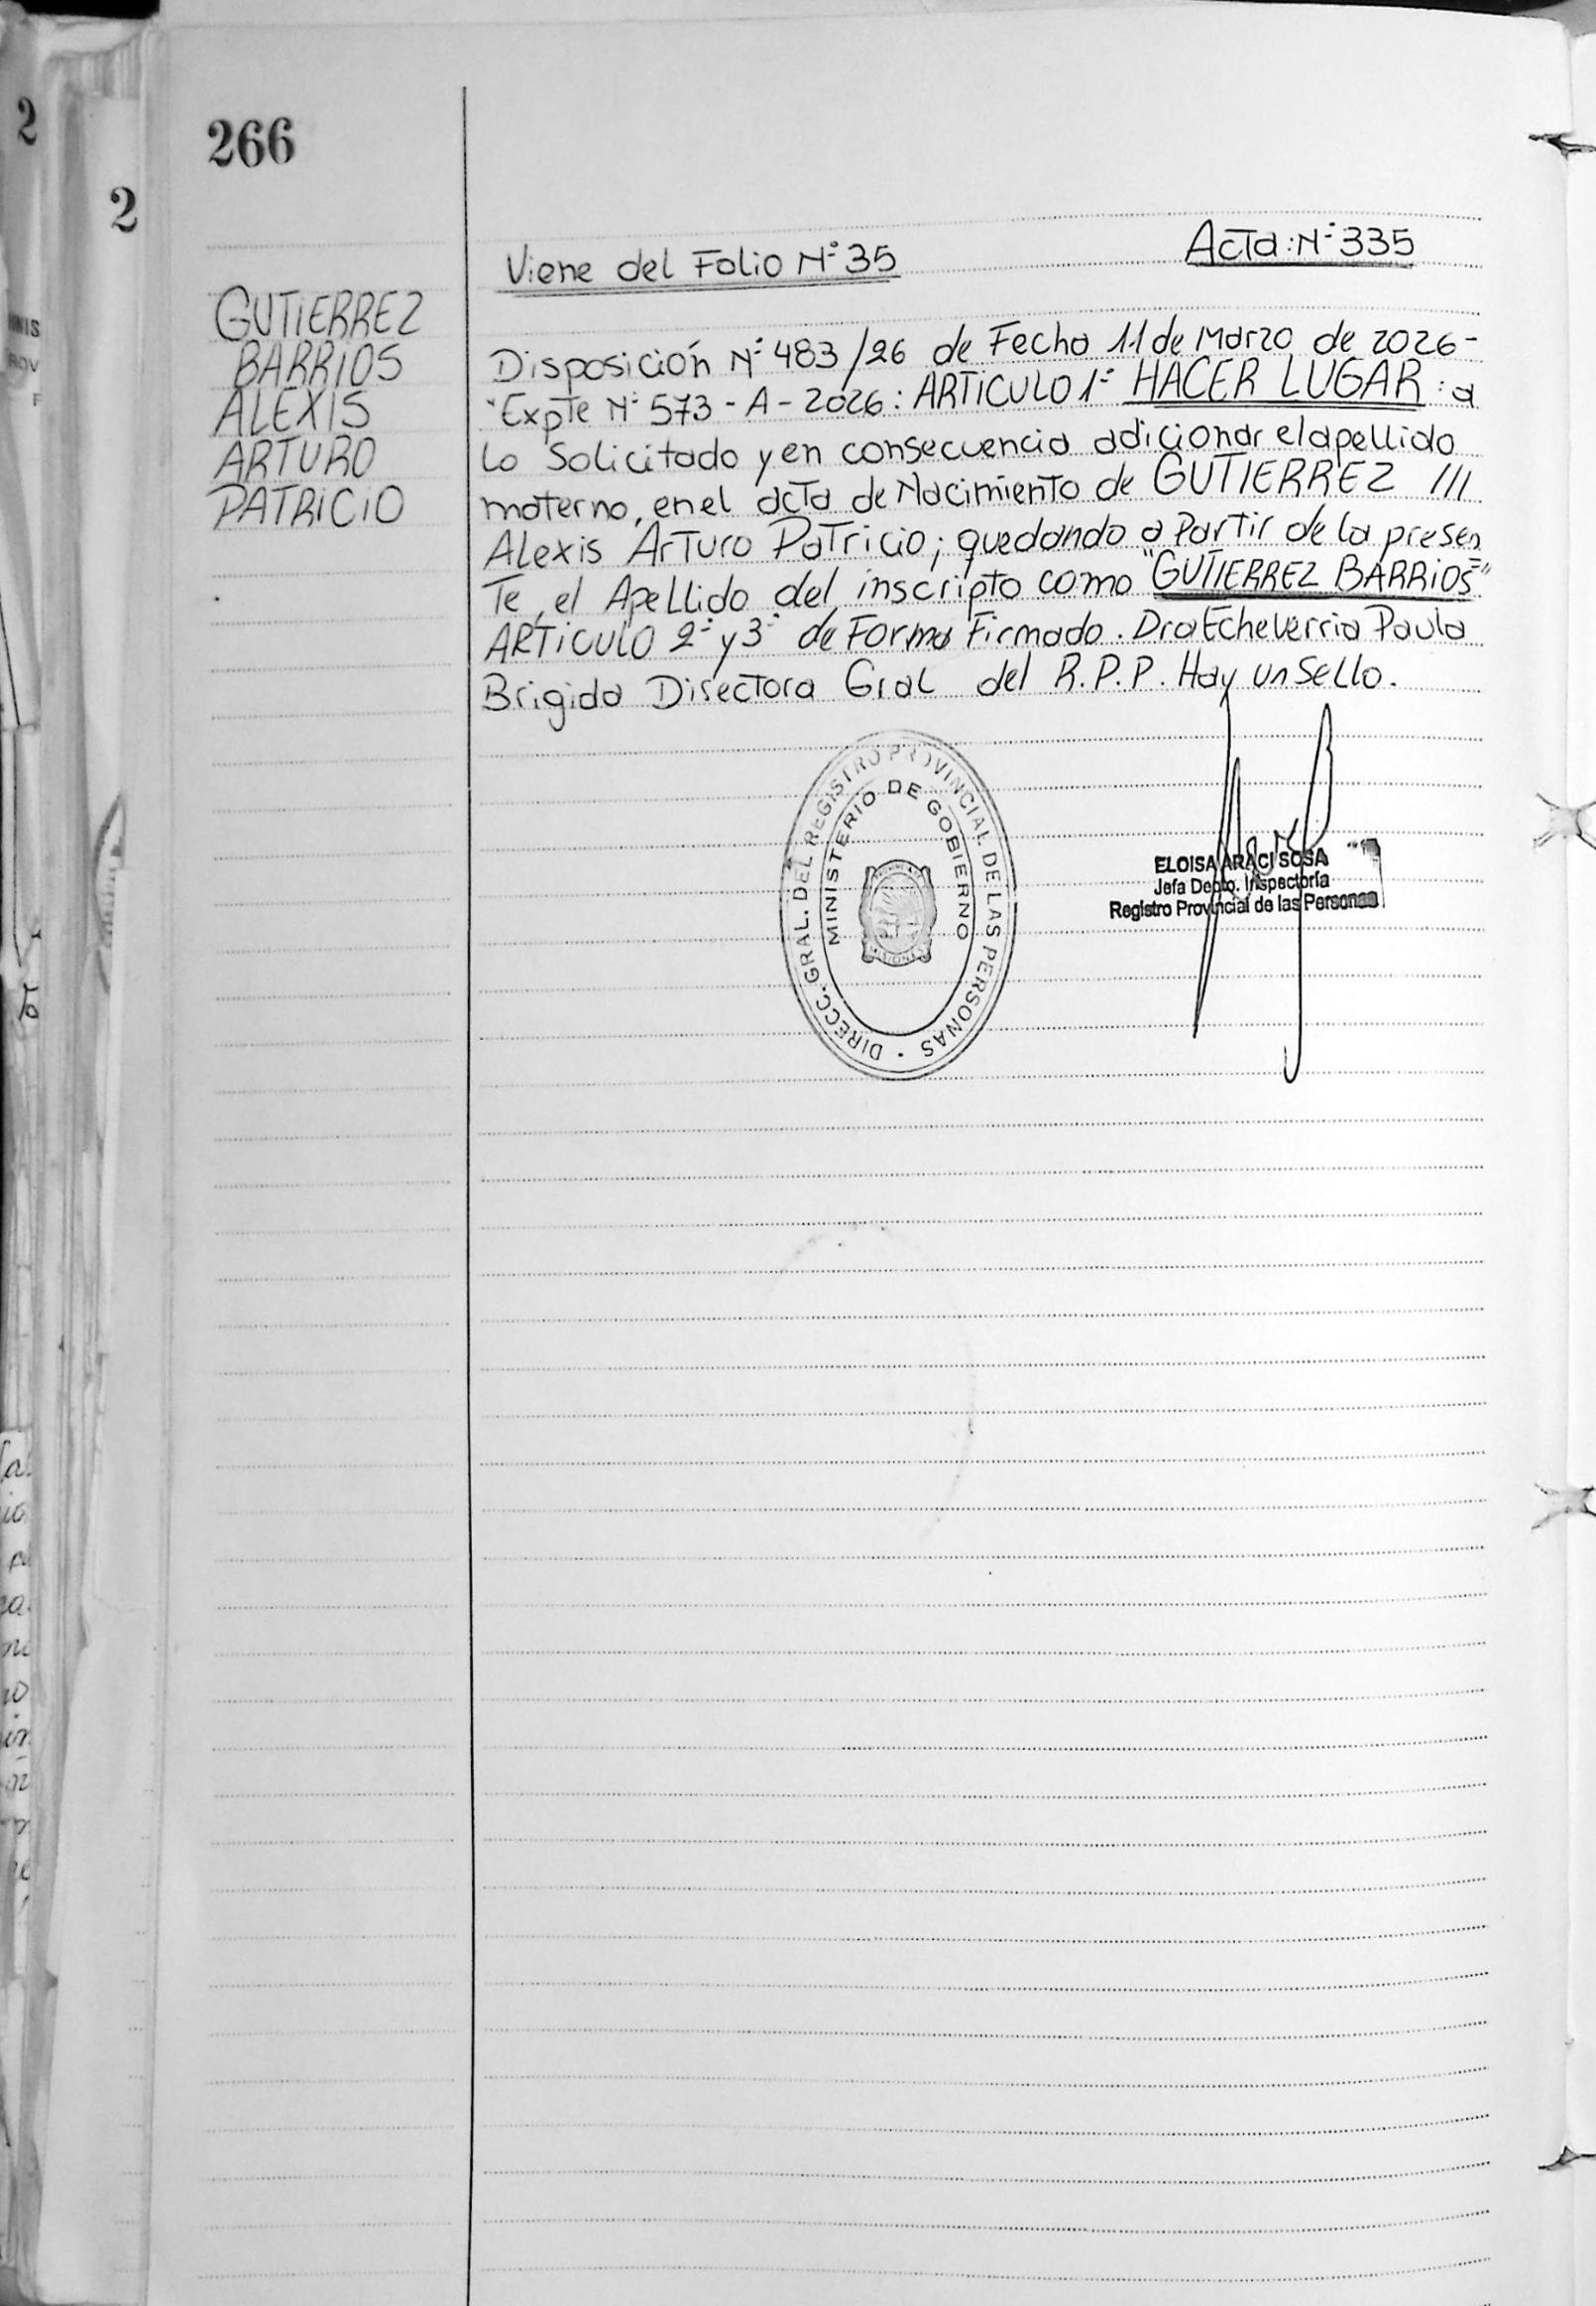 2
2
266
Viene del Folio N° 35
Acta: N° 335
GUTIERREZ
BARRIOS
ALEXIS
ARTURO
PATRICIO
Disposición N° 483/26 de Fecha 11 de Marzo de 2026-
"Expte N° 573-A-2026: ARTICULO 1° HACER LUGAR: a
lo Solicitado y en consecuencia adicionar el apellido
materno, en el acta de Nacimiento de GUTIERREZ ///
Alexis Arturo Patricio; quedando a partir de la presen
te, el Apellido del inscripto como "GUTIERREZ BARRIOS"
ARTICULO 2° y 3° de Forma Firmado. Dra Echeverria Paula
Brigida Directora Gral del R.P.P. Hay un Sello.
DIRECC. GRAL. DEL REGISTRO PROVINCIAL DE LAS PERSONAS
MINISTERIO DE GOBIERNO
MISIONES
ELOISA ARACI SOSA
Jefa Depto. Inspectoría
Registro Provincial de las Personas